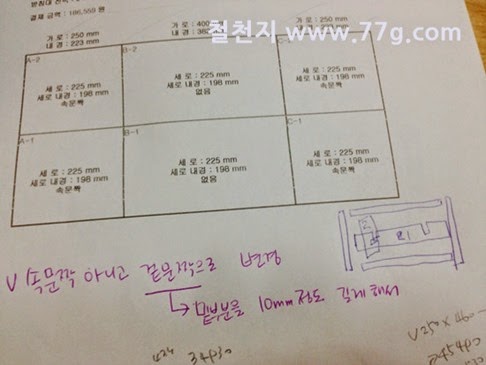 결제 금액 : 186,559 원
철천지 www.77g.com
가 로 : 250 mm
내 경 : 223 mm
가 로 : 400
내 경 : 382
가 로 : 250 mm
A-2
세 로 : 225 mm
세로 내경 : 198 mm
속문짝
B-2
세 로 : 225 mm
세로 내경 : 198 mm
없음
C-2
세 로 : 225 mm
세로 내경 : 198 mm
속문짝
A-1
세 로 : 225 mm
세로 내경 : 198 mm
속문짝
B-1
세 로 : 225 mm
세로 내경 : 198 mm
없음
C-1
세 로 : 225 mm
세로 내경 : 198 mm
속문짝
V 속문짝 아니고 겉문짝으로 변경
밑부분을 10mm 정도 길게 해서